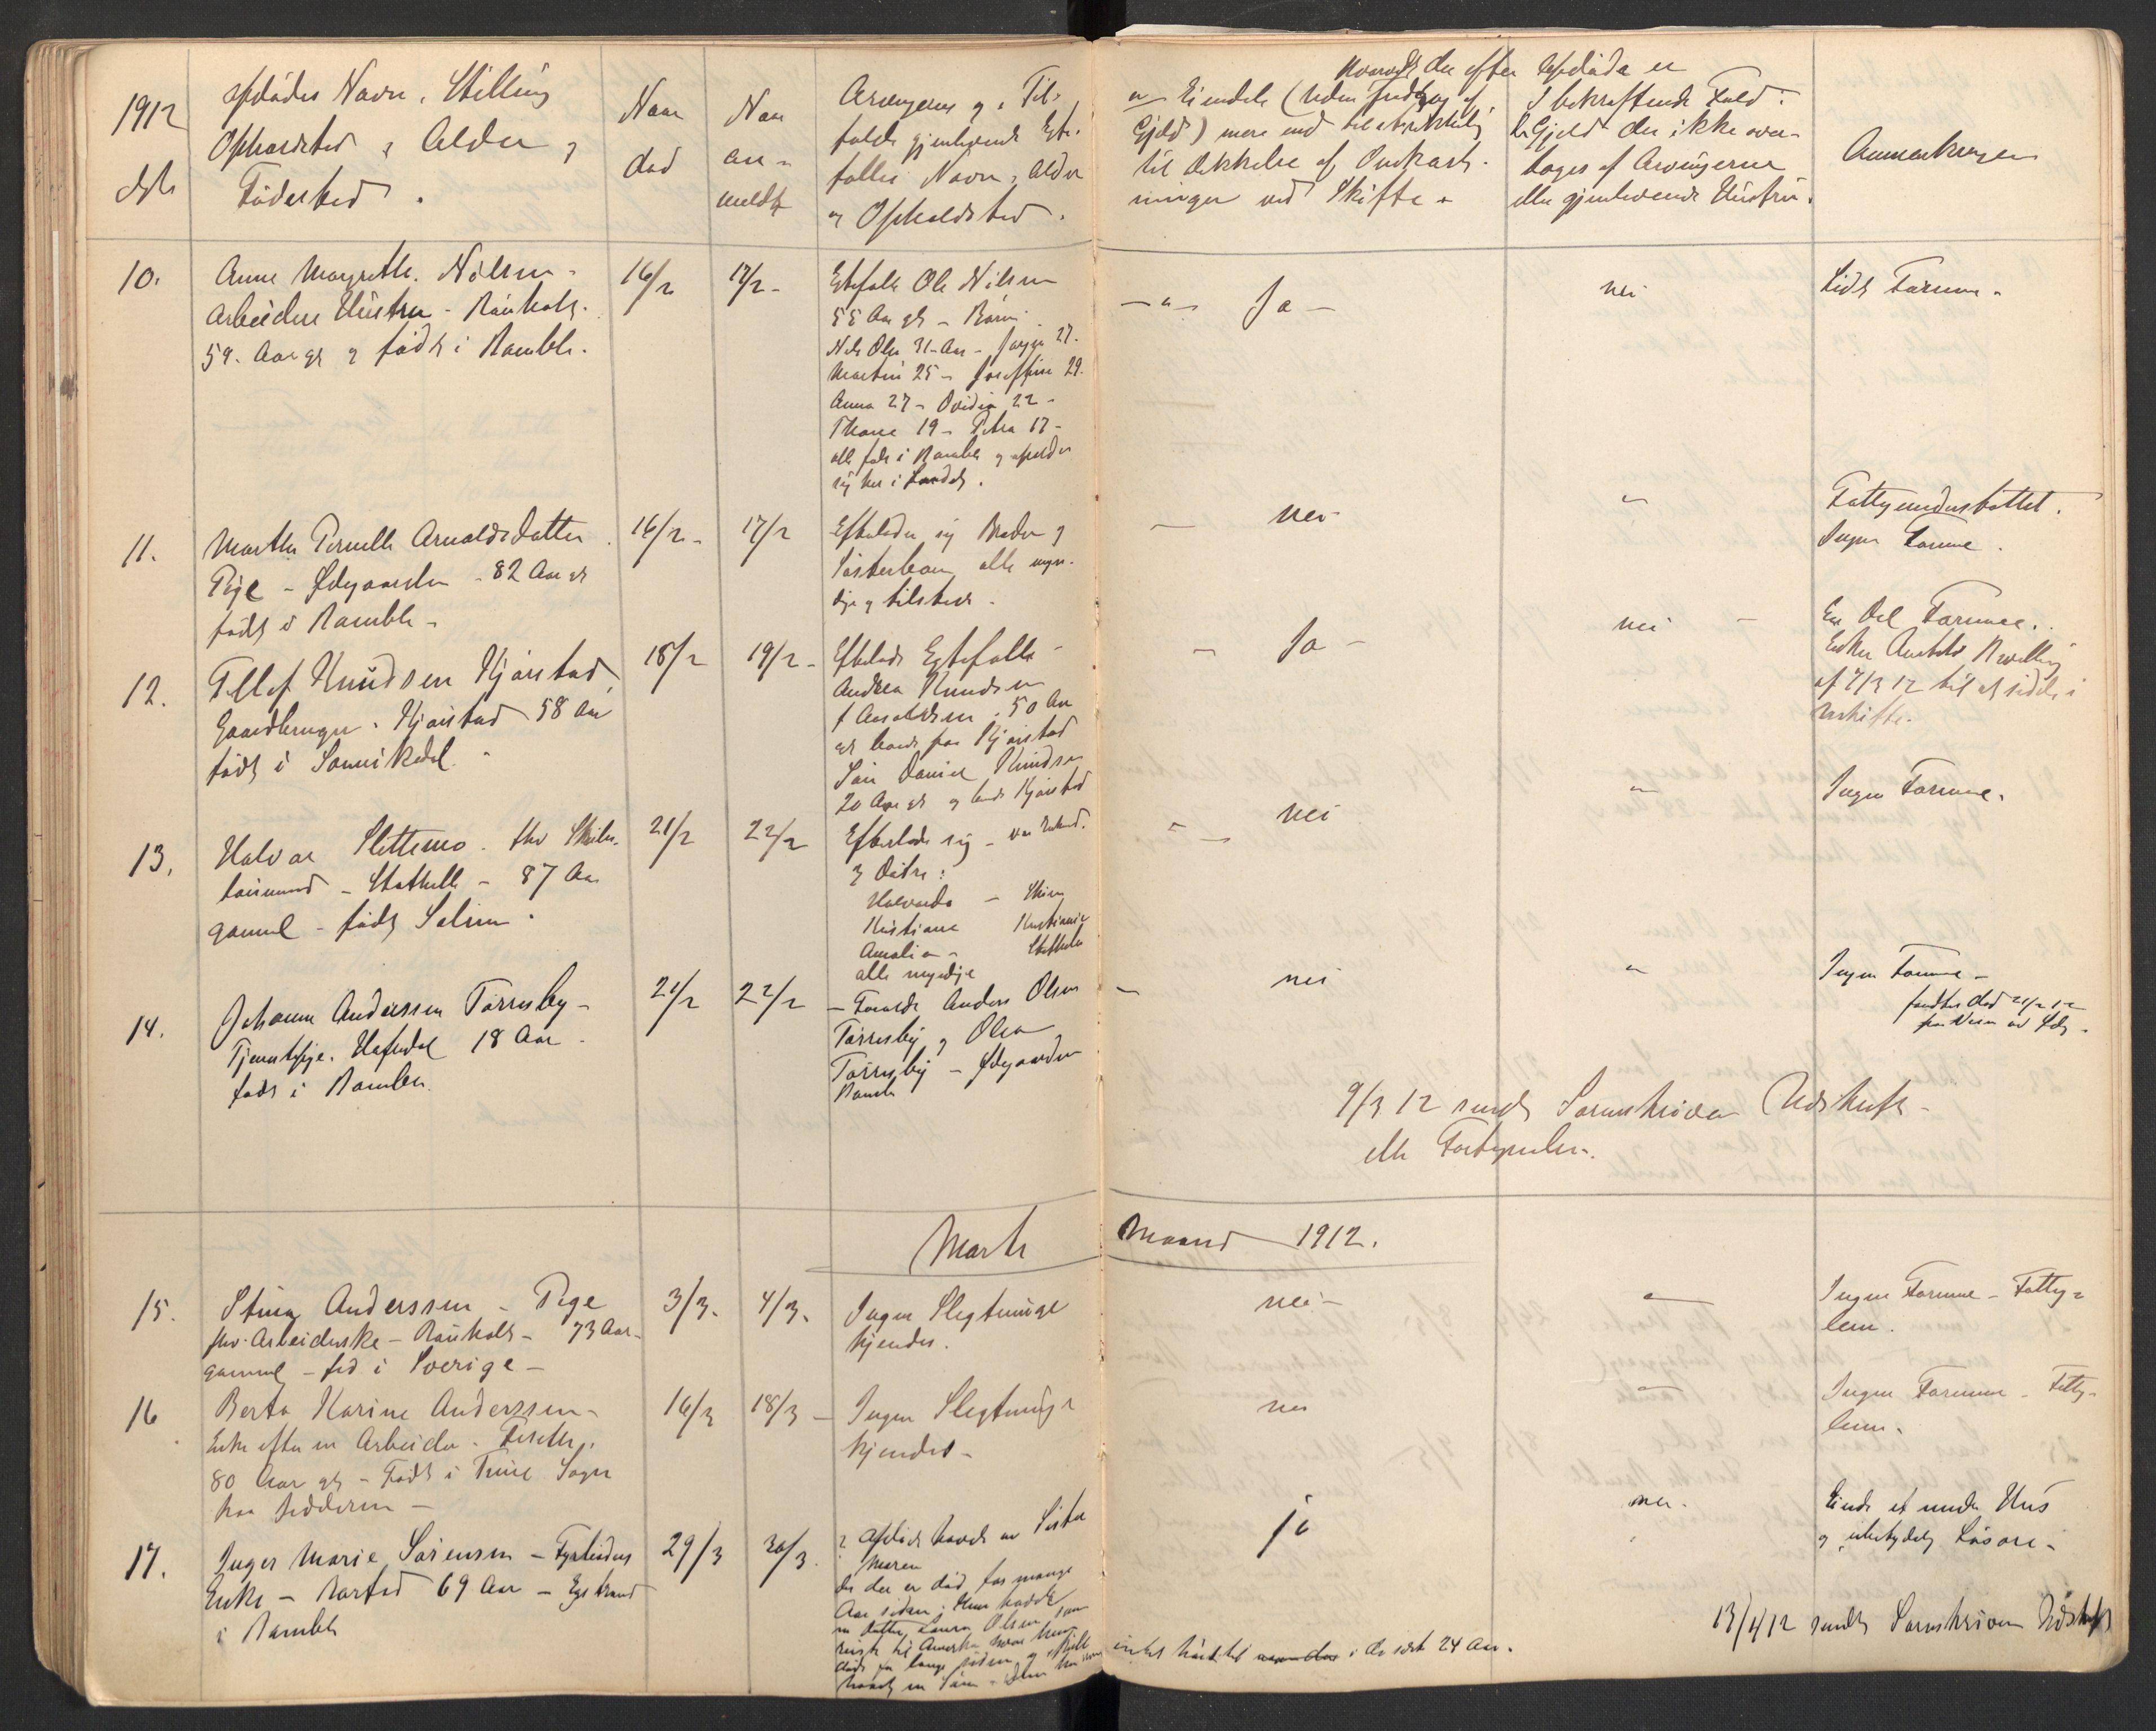 1912
afdødes Navn, Stilling
Opholdsted, Alder og
Fødested.
Naar
død
Naar
an-
meldt
Arvingerne og i Til-
fælde gjenlevende Egte-
fælles Navn, Alder
og Opholdsted.
Hvorvidt der efter Afdøde er
Eiendele (uden Fradrag af
Gjeld) mere end tilstrækkelig
til Dekkelse af Omkost-
ninger ved Skifte
I bekræftende Fald:
Gjeld der ikke over-
tages af Arvingerne
eller gjenlevende Hustru.
Anmerkninger
10.
Anne Margrethe Nilsen -
Arbeiders Hustru - Rønholt.
59. Aar gl og født i Bamble.
16/2
17/2 -
Egtefælle Ole Nilsen
55 Aar gl - Børn:
Nils Olsen 31 Aar - Jørgen 27.
Martin 25 - Josefine 29.
Anna 27 - Ovidia 22 -
Thora 19 - Petra 17 -
alle født i Bamble og opholder
sig her i Landet.
- " - Ja -
nei
Lidt Formue -
11.
Marthe Pernelle Arnoldsdatter
Pige - Ødegaarden - 82 Aar gl
født i Bamble -
16/2 -
17/2
Efterlader sig Broder og
Søsterbørn, alle myn-
dige og tilstede -
nei
"
Fattigunderstøttet.
Ingen Formue.
12.
Tellef Knudsen Kjørstad
Gaardbruger - Kjørstad 58 Aar
født i Sannikedal.
18/2
19/2 -
Efterlader Egtefælle -
Andrea Knudsen
f Arnoldsen. 50 Aar
gl boende paa Kjørstad
Søn Daniel Knudsen
20 Aar gl og boende Kjørstad
Ja -
nei -
En Del Formue.
Enken Bevilling
af 7/3 12 til at sidde i
uskifte.
13.
Halvor Slettemo. fhv
- Stathelle - 87 Aar
gammel - født
21/2
22/2
Efterlod sig - var Enkemd.
3 Døtre:
Halvarda - Skien
Kristiane Kristiania
Amalie - Stathelle
alle myndige
nei
"
Ingen Formue.
14.
Johanne Anderssen Tørrisby -
Tjenestepige. Hafsdal 18 Aar
født i Bamble.
21/2
22/2
- Forældre Anders Olsen
Tørrisby og Olea
Tørrisby - Ødegaarden
Bamble
nei
"
Ingen Formue -
fundtes død 21/2 12
9/3 12 sendt Sorenskriveren Udskrift -
Marts Maaned 1912.
15.
Stina Anderssen - Pige
fhv. Arbeiderske - Rønholt - 73 Aar
gammel - fød i Sverige -
3/3.
4/3.
Ingen Slegtninge
kjendes.
nei -
"
Ingen Formue - Fattig-
lem.
16
Berta Karine Anderssen -
Enke efter en Arbeider -
80 Aar gl - Født i
16/3
18/3 -
Ingen Slegtninge
kjendes -
nei
"
Ingen Formue - Fattig-
lem.
17.
Inger Marie Sørensen -
Enke - 69 Aar -
i Bamble
29/3
30/3.
Afdøde havde en Søster
Maren
der er død for mange
Aar siden; Hun havde
en datter Laura Olsen som
reist til Amerika hvor hun
døde for længe siden og
havde en Søn
i de sidst 24 Aar.
ja
nei.
Eiede et mindre Hus
og ubetydelig Løsøre -
13/4 12 sendt Sorenskriveren Udskrift